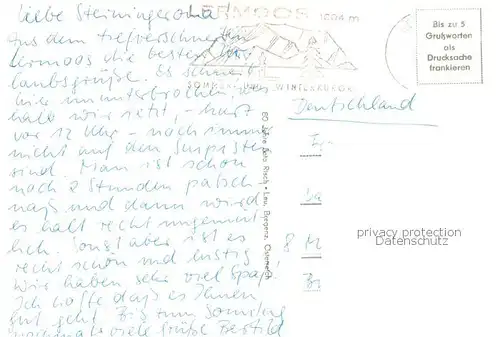 Liebe Steiningeroma!
aus dem tiefverschneiten
Lermoos die besten Ur-
laubsgrüße. Es schneit
hier ununterbrochen
halb wir jetzt, - kurz
vor 12 Uhr - noch immer
nicht auf den Skipisten
sind. Man ist schon
nach 2 Stunden patsch-
naß und dann wird
es halt recht ungemüt-
lich. Sonst aber ist es
recht schön und lustig
Wir haben sehr viel Spaß
Ich hoffe daß es Ihnen
gut geht Bis zum Sonntag
nochmals viele Grüße
LERMOOS 1004 m
SOMMER- UND WINTERKURORT
Bis zu 5
Grußworten
als
Drucksache
frankieren
Deutschland
8 M
privacy protection
Datenschutz